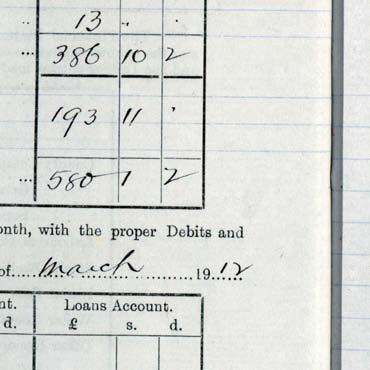 .. 13 " "
... 386 10 2
193 11 "
... 580 1 2
onth, with the proper Debits and
of....March............19 12......
nt. Loans Account.
d. £ s. d.